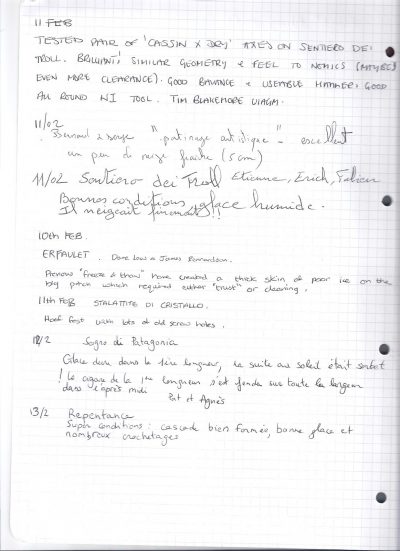 11 FEB
TESTED PAIR OF 'CASSIN X DRY' AXES ON SENTIERO DEI
TROLL. BRILLIANT! SIMILAR GEOMETRY & FEEL TO NOMICS (MAYBE
EVEN MORE CLEARANCE). GOOD BALANCE & USEABLE HAMMER; GOOD
ALL ROUND WI TOOL. TIM BLAKEMORE UIAGM.
11/02
" patinage artistique " - excellent
un peu de neige fraîche (5 cm)
11/02 Sentiero dei Troll Etienne, Erich, Fabien
Bonnes conditions, glace humide.
Il neigeait finement!!
10th FEB.
ERFAULET. Dave Low & James
Previous "freeze & thaw" have created a thick skin of poor ice on the
big pitch which required either "trust" or cleaning.
11th FEB STALATTITE DI CRISTALLO.
Hoof fest with lots of old screw holes.
12/2 Sogno di Patagonia
Glace dure dans la 1ère longueur, la suite au soleil était sorbet
! Le cigare de la 1ère longueur s'est fendu sur toute la largeur
dans l'après midi
Pat et Agnès
13/2 Repentance
Super conditions : cascade bien formée, bonne glace et
nombreux crochetages